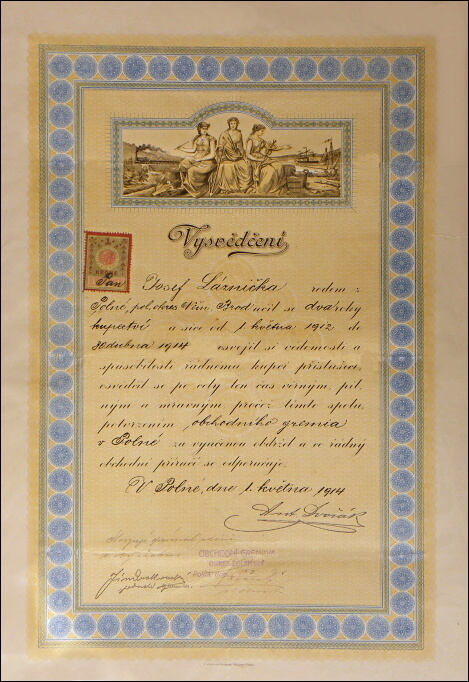 Vysvědčení
Pan Josef Láznička rodem z
Polné, pol. okres Něm. Brod učil se dva roky
kupectví a sice od 1. května 1912 do
30. dubna 1914 osvojil si vědomosti a
spůsobilosti řádnému kupci příslušící,
osvědčil se po celý ten čas věrným, pil-
ným a mravným pročež tímto spolu
potvrzením obchodního gremia
v Polné za vyučenou obdržel a co řádný
obchodní příručí se odporučuje.
V Polné, dne 1. května 1914
Ant. Dvořák
OBCHODNÍ GREMIUM